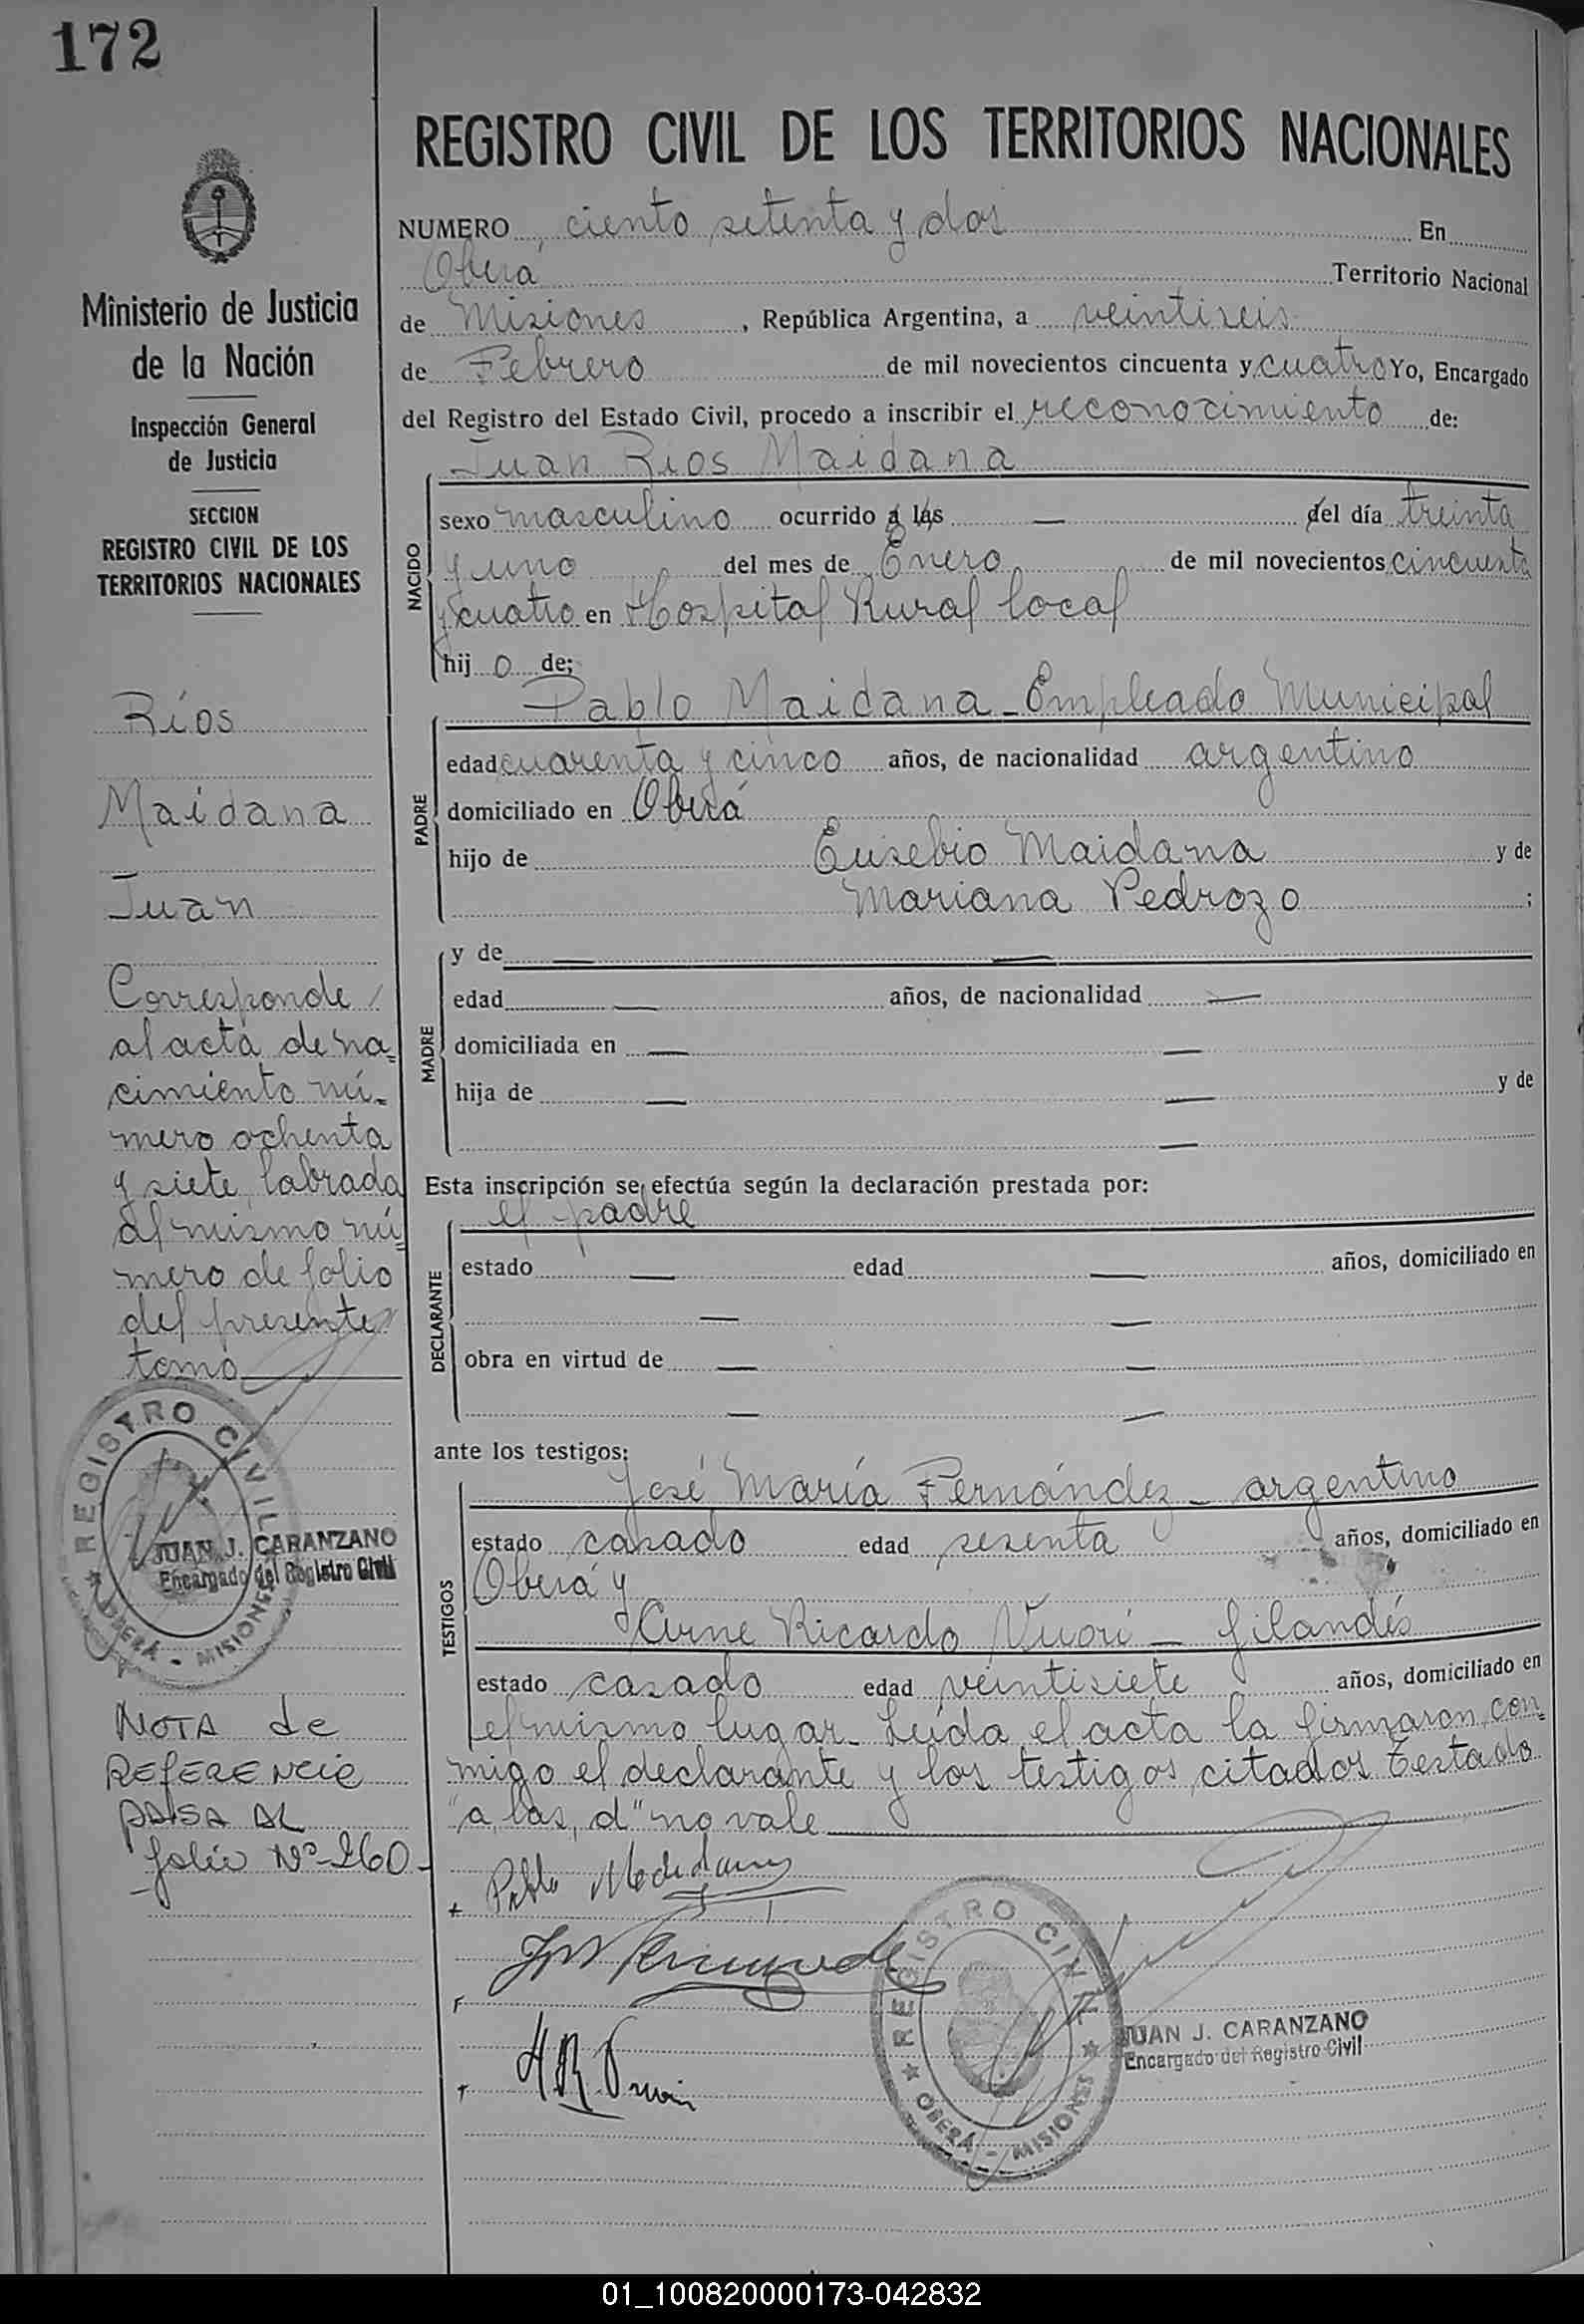 172
REGISTRO CIVIL DE LOS TERRITORIOS NACIONALES
Ministerio de Justicia
de la Nación
Inspección General
de Justicia
SECCION
REGISTRO CIVIL DE LOS
TERRITORIOS NACIONALES
Ríos
Maidana
Juan
Corresponde
al acta de na=
cimiento nú=
mero ochenta
y siete, labrada
al mismo nú=
mero de folio
del presente
tomo
REGISTRO CIVIL
OBERÁ - MISIONES
JUAN J. CARANZANO
Encargado del Registro Civil
NOTA de
REFERENCIA
PASA AL
folio Nº 260-
NUMERO ciento setenta y dos En
Oberá Territorio Nacional
de Misiones, República Argentina, a veintiseis
de Febrero de mil novecientos cincuenta y cuatro Yo, Encargado
del Registro del Estado Civil, procedo a inscribir el reconocimiento de:
Juan Rios Maidana
NACIDO
sexo masculino ocurrido a las — del día treinta
y uno del mes de Enero de mil novecientos cincuenta
y cuatro en Hospital Rural local
hijo de;
Pablo Maidana - Empleado Municipal
PADRE
edad cuarenta y cinco años, de nacionalidad argentino
domiciliado en Oberá
hijo de Eusebio Maidana y de
Mariana Pedrozo ;
MADRE
y de — —
edad — años, de nacionalidad —
domiciliada en — —
hija de — — y de
—
Esta inscripción se efectúa según la declaración prestada por:
el padre
DECLARANTE
estado — edad — años, domiciliado en
— —
obra en virtud de — —
— —
ante los testigos:
José María Fernández - argentino
TESTIGOS
estado casado edad sesenta años, domiciliado en
Oberá y
Arne Ricardo Vuori - filandés
estado casado edad veintisiete años, domiciliado en
el mismo lugar. Leída el acta la firmaron con=
migo el declarante y los testigos citados. Testado
"a, las, d" no vale
Pablo Maidana
REGISTRO CIVIL
OBERÁ - MISIONES
JUAN J. CARANZANO
Encargado del Registro Civil
01_100820000173-042832